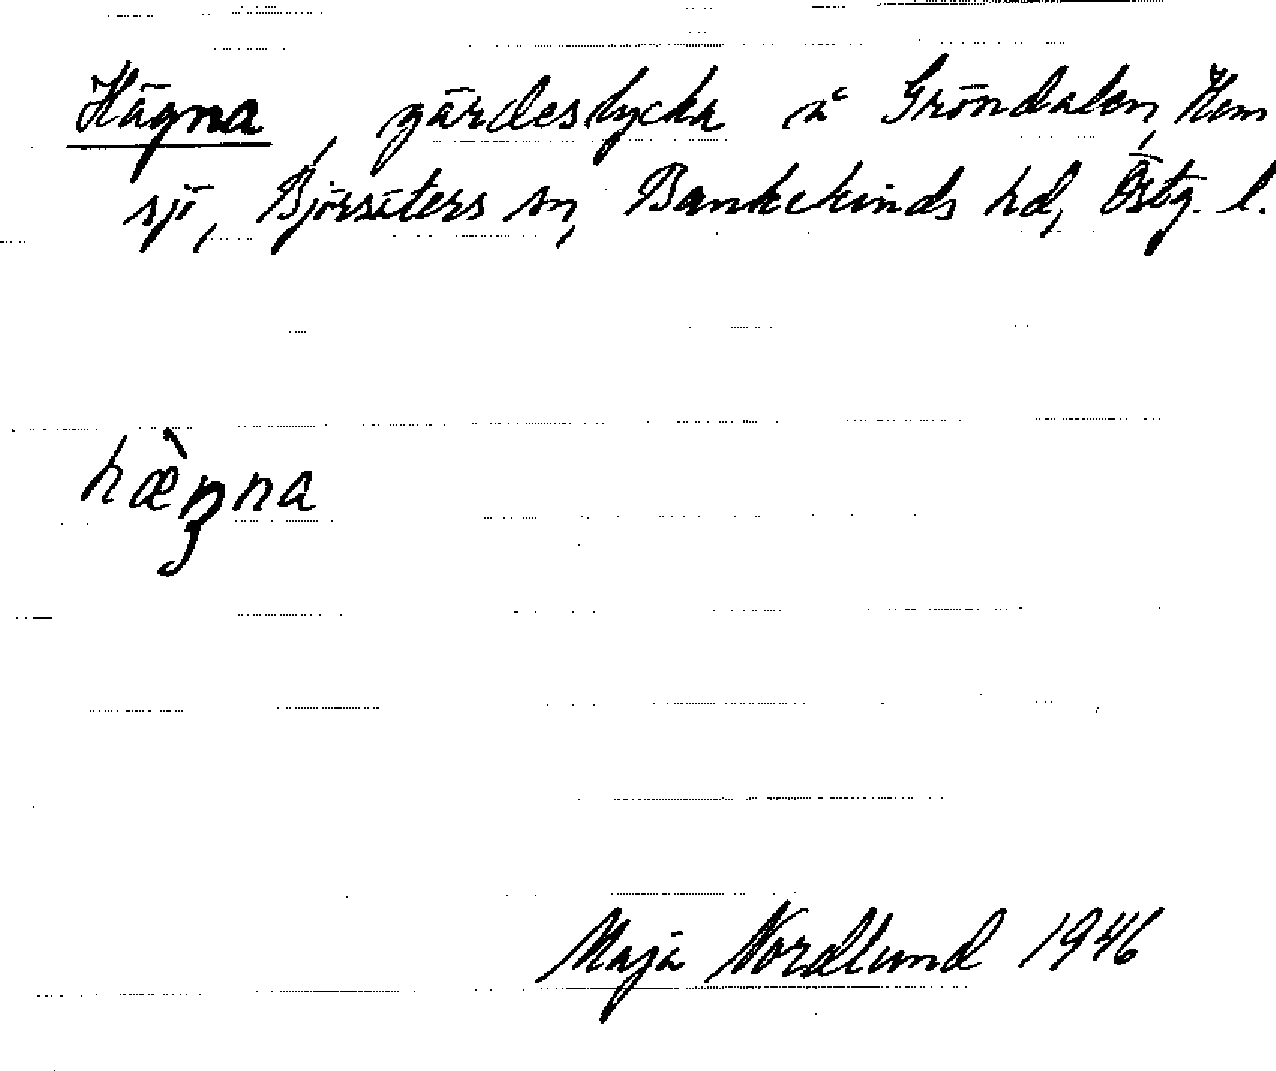 Hägna, gärdeslycka å Gröndalen, Hem
sjö, Björsäters sn, Bankekinds hd, Östg. l.
hæ̀ŋna
Maja Nordlund 1946